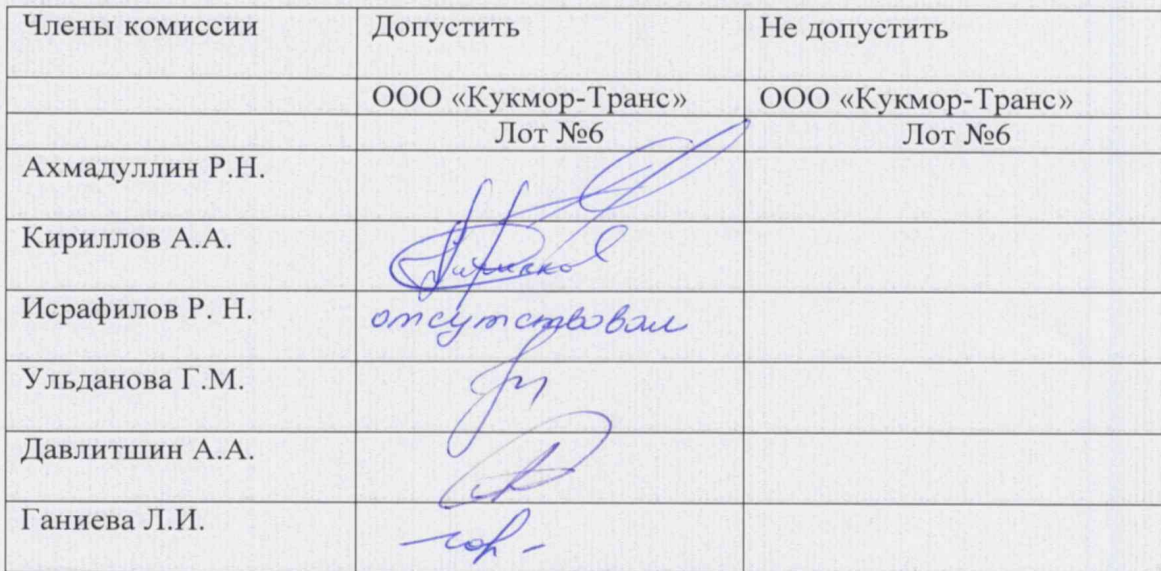 Члены комиссии Допустить Не допустить
ООО «Кукмор-Транс» ООО «Кукмор-Транс»
Лот №6 Лот №6
Ахмадуллин Р.Н.
Кириллов А.А.
Исрафилов Р. Н. отсутствовал
Ульданова Г.М.
Давлитшин А.А.
Ганиева Л.И.